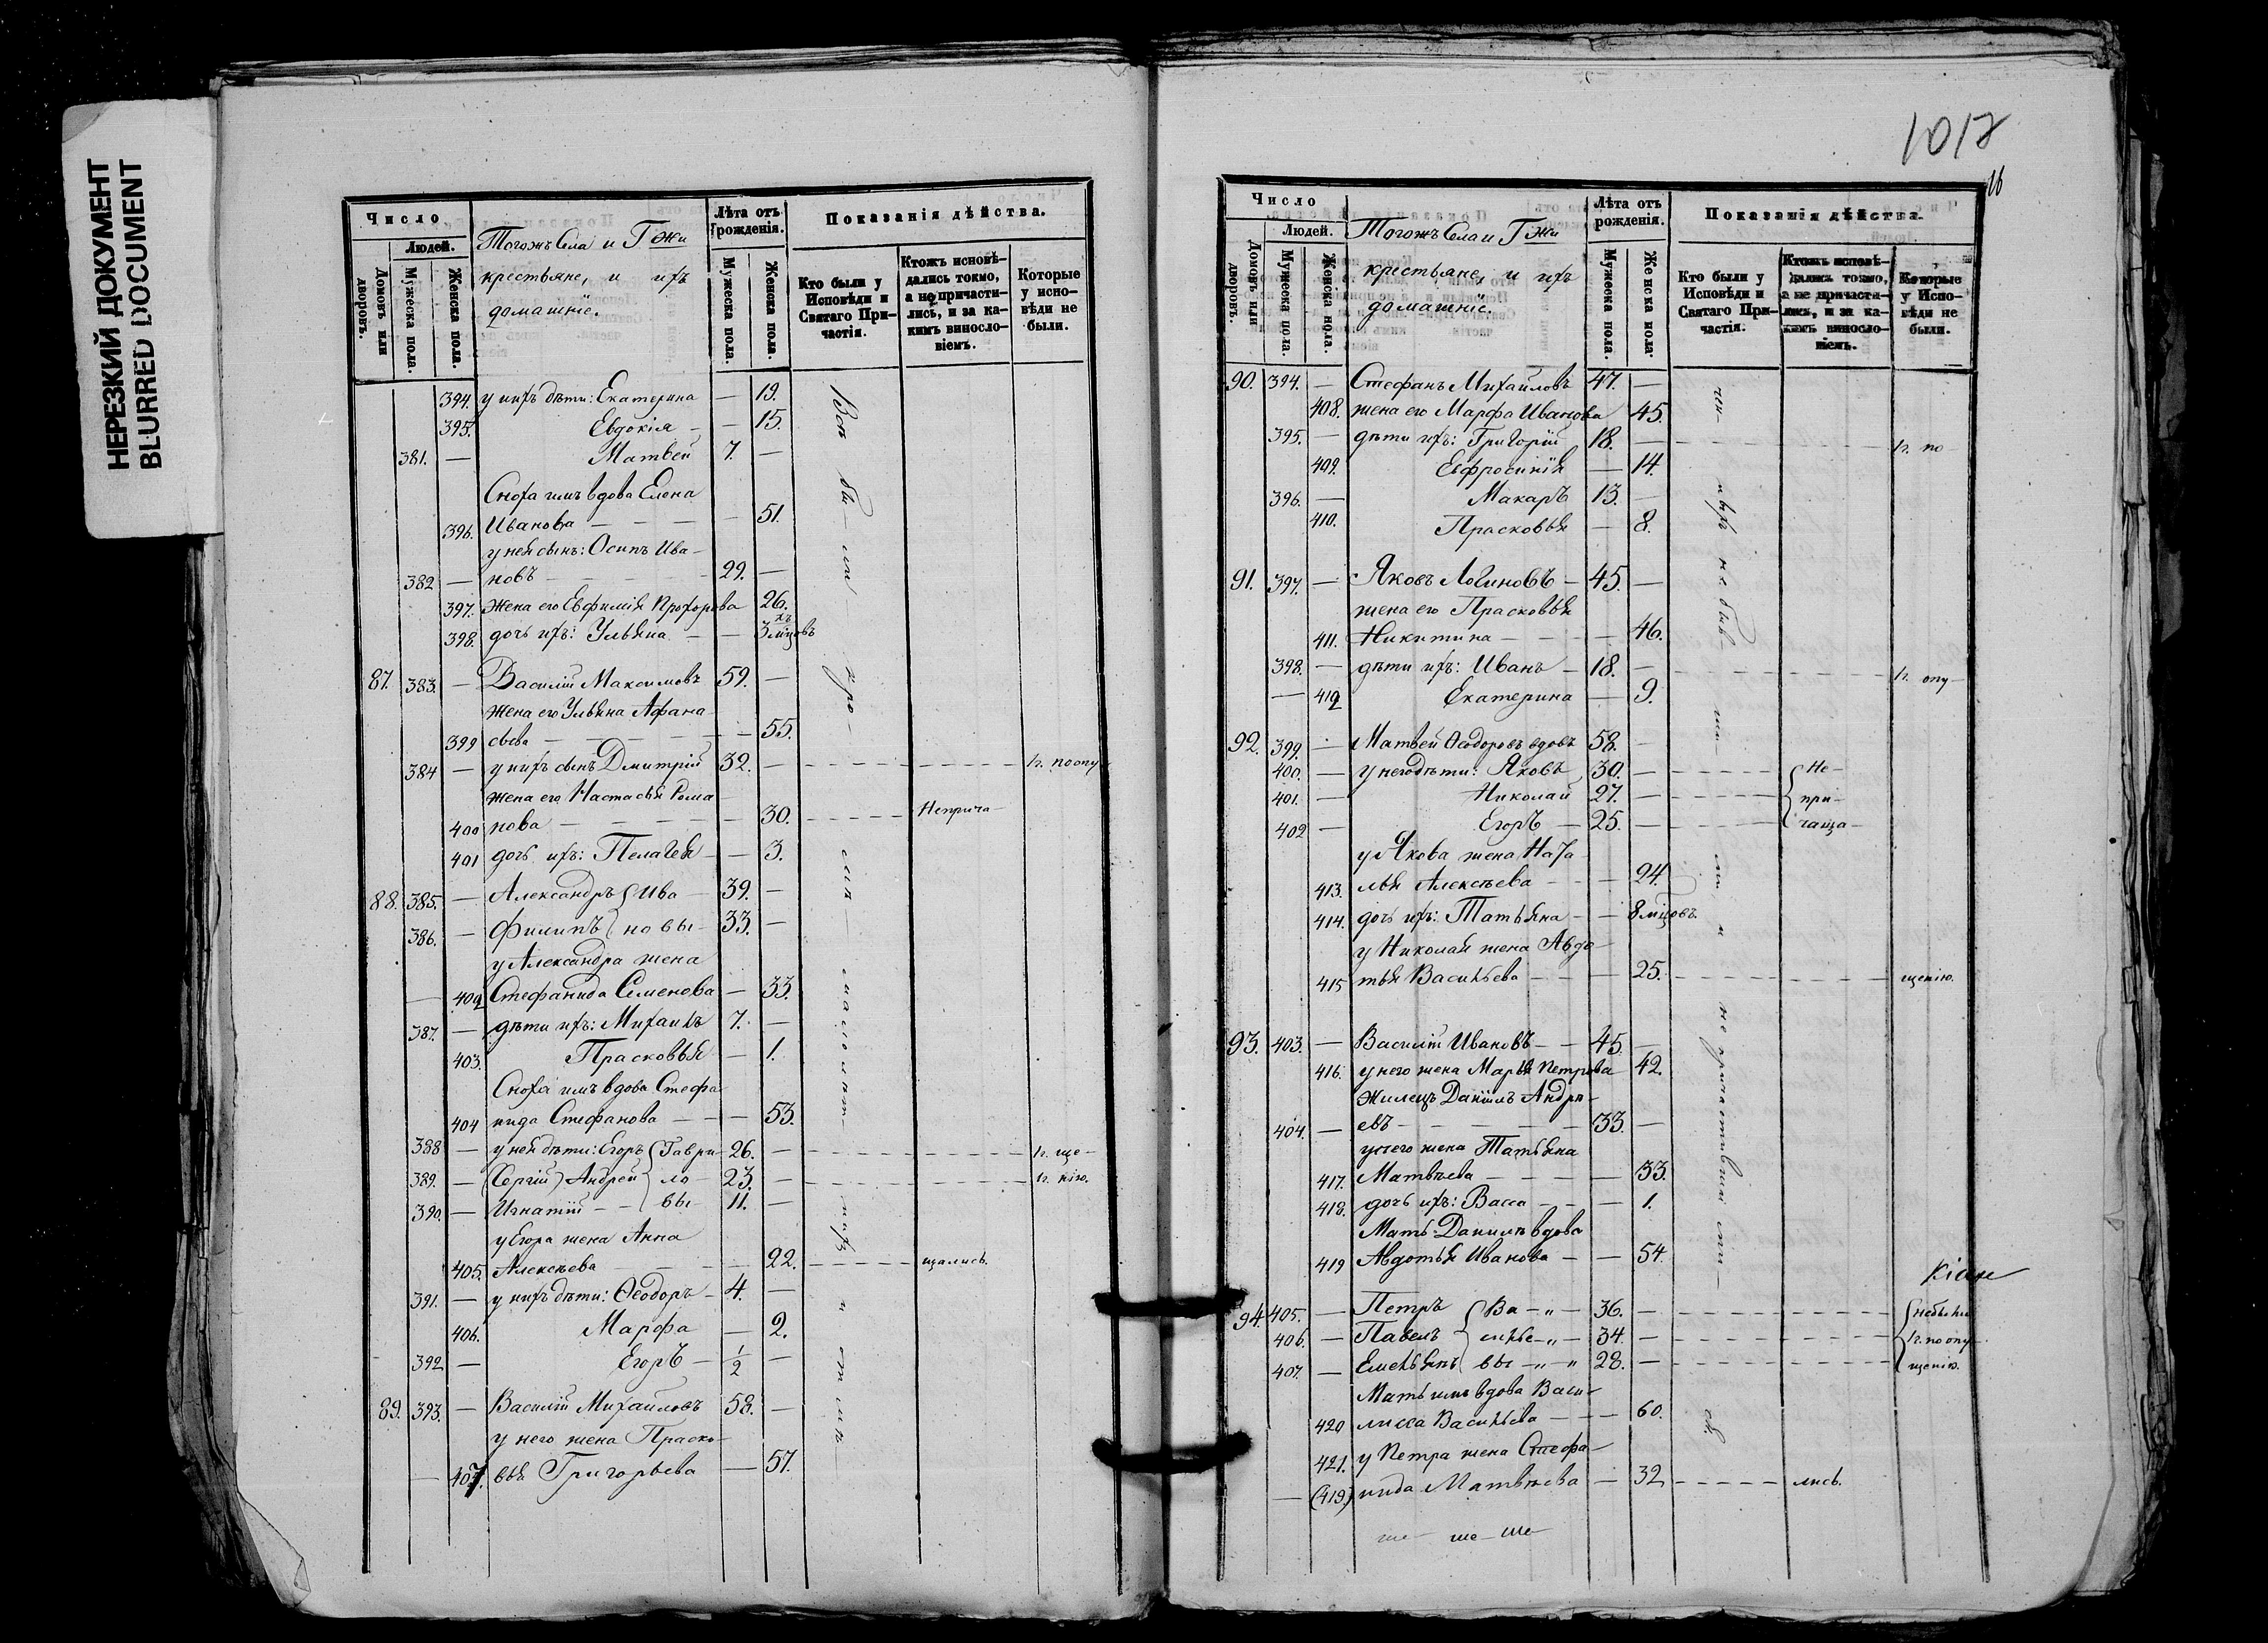 НЕРЕЗКИЙ ДОКУМЕНТ
BLURRED DOCUMENT
Число
Людей.
Домовъ или дворовъ.
Мужеска пола.
Женска пола.
Тогожъ Села и Г жи
крестьяне, и ихъ
домашніе.
Лѣта отъ рожденія.
Мужеска пола.
Женска пола.
Показанія дѣйства.
Кто были у Исповѣди и Святаго Причастія.
Ктожъ исповѣдались токмо, а не причастились, и за какимъ винословіемъ.
Которые у исповѣди не были.
394. у нихъ дѣти: Екатерина — 19.
395. Евдокія — 15.
381. — Матвей 7. —
Сноха имъ вдова Елена
396. Иванова — 51.
у нея сынъ: Осипъ Ива-
382 — новъ — 29. —
397. жена его Евфимія Прохорова 26.
398. дочь ихъ: Ульяна — — 3 мцовъ
87. 383. — Василій Максимовъ 59. —
жена его Ульяна Афана-
399 сьева — 55.
384 — у нихъ сынъ Дмитрій 32. — по опу
жена его Настасья Рома-
400 нова — 30. Неприча-
401 дочь ихъ: Пелагея — 3.
88. 385. — Александръ { Ива- 39. —
386. — Филипъ { новы- 33. —
у Александра жена
402 Стефанида Семенова — 33.
387. — дѣти ихъ: Михаилъ 7. —
403. Прасковья — 1.
Сноха имъ вдова Стефа-
404 нида Стефанова — 53.
388 — у нея дѣти: Егоръ { Гаври- 26. — ще-
389. — (Сергій) Андрей { ло- 23. — нію.
390. — Игнатій — { вы- 11. —
у Егора жена Анна
405. Алексѣева — 22. щались.
391. — у нихъ дѣти: Ѳеодоръ — 4. —
406. Марфа — 2.
392 — Егоръ — 1/2 —
89. 393. — Василій Михаиловъ 58. —
у него жена Праско-
407. вья Григорьева — 57.
1017
16
Число
Людей.
Домовъ или дворовъ.
Мужеска пола.
Женска пола.
Тогожъ Села и Г жи
крестьяне, и ихъ
домашніе.
Лѣта отъ рожденія.
Мужеска пола.
Женска пола.
Показанія дѣйства.
Кто были у Исповѣди и Святаго Причастія.
Ктожъ исповѣдались токмо, а не причастились, и за какимъ винословіемъ.
Которые у Исповѣди не были.
90. 394. — Стефанъ Михайловъ 47. —
408. жена его Марфа Иванова 45.
395. — дѣти ихъ: Григорій 18. — по
409. Евфросинія — 14.
396. — Макаръ 13. —
410. Прасковья — 8.
91. 397. — Яковъ Логиновъ — 45. —
жена его Прасковья
411. Никитина — 46.
398. — дѣти ихъ: Иванъ — 18. — опу-
— 412 Екатерина — 9.
92. 399. — Матвей Ѳеодоровъ вдовъ 58. —
400. — у него дѣти: Яковъ 30. — { Не-
401. — Николай 27. — { при-
402 — Егоръ — 25. — { чаща-
у Якова жена Ната-
413. лья Алексѣева — 24.
414. дочь ихъ: Татьяна — — 8 мцовъ
у Николая жена Авдо-
415 тья Васильева — 25. щенію.
93. 403. — Василій Ивановъ — 45. —
416. у него жена Марья Петрова 42.
Жилецъ Даніилъ Андре-
404. — евъ — 33. —
у него жена Татьяна
417. Матвѣева — 33.
418. дочь ихъ: Васса — — 1.
Мать Данилы вдова
419 Авдотья Иванова — — 54
94. 405. — Петръ { Ва- " — 36. — { небыли
406. — Павелъ { силье- " — 34. — { по опу-
407. — Емельянъ { вы — " — " 28. — { щенію.
Мать имъ вдова Васи-
420 лисса Васильева — — 60.
421. у Петра жена Стефа-
— (419) нида Матвѣева — 32 лись.